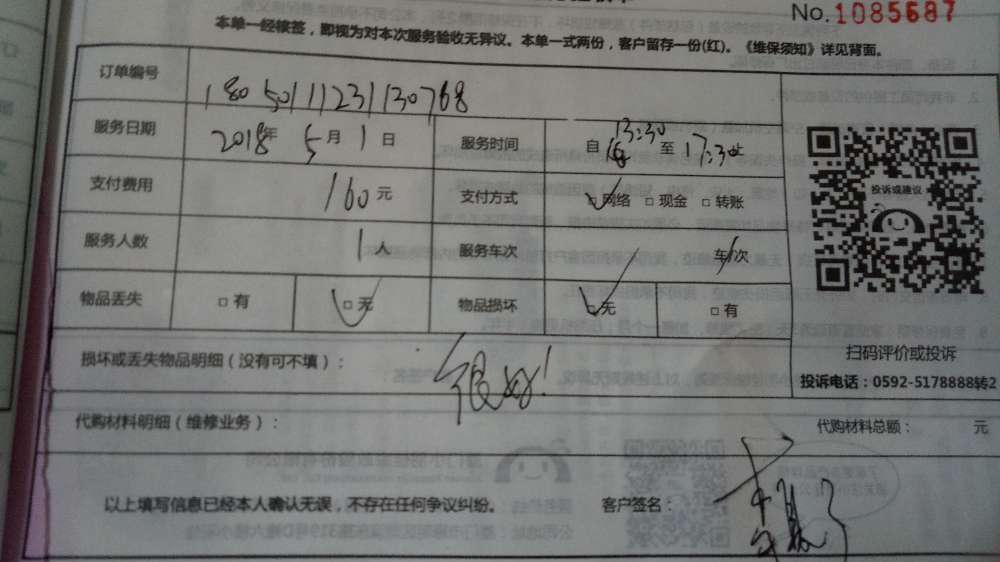 No. 1085687
本单一经接签，即视为对本次服务验收无异议。本单一式两份，客户留存一份(红)。《维保须知》详见背面。
订单编号 18050111231130768
服务日期 2018年 5月 1日 服务时间 自 13:30 至 17:30止
支付费用 160元 支付方式 □网络 □现金 □转账
投诉或建议
服务人数 1人 服务车次 车/次
物品丢失 □有 □无 物品损坏 □无 □有
扫码评价或投诉
损坏或丢失物品明细（没有可不填）： 很好！
投诉电话：0592-5178888转2
代购材料明细（维修业务）： 代购材料总额： 元
以上填写信息已经本人确认无误，不存在任何争议纠纷。 客户签名：